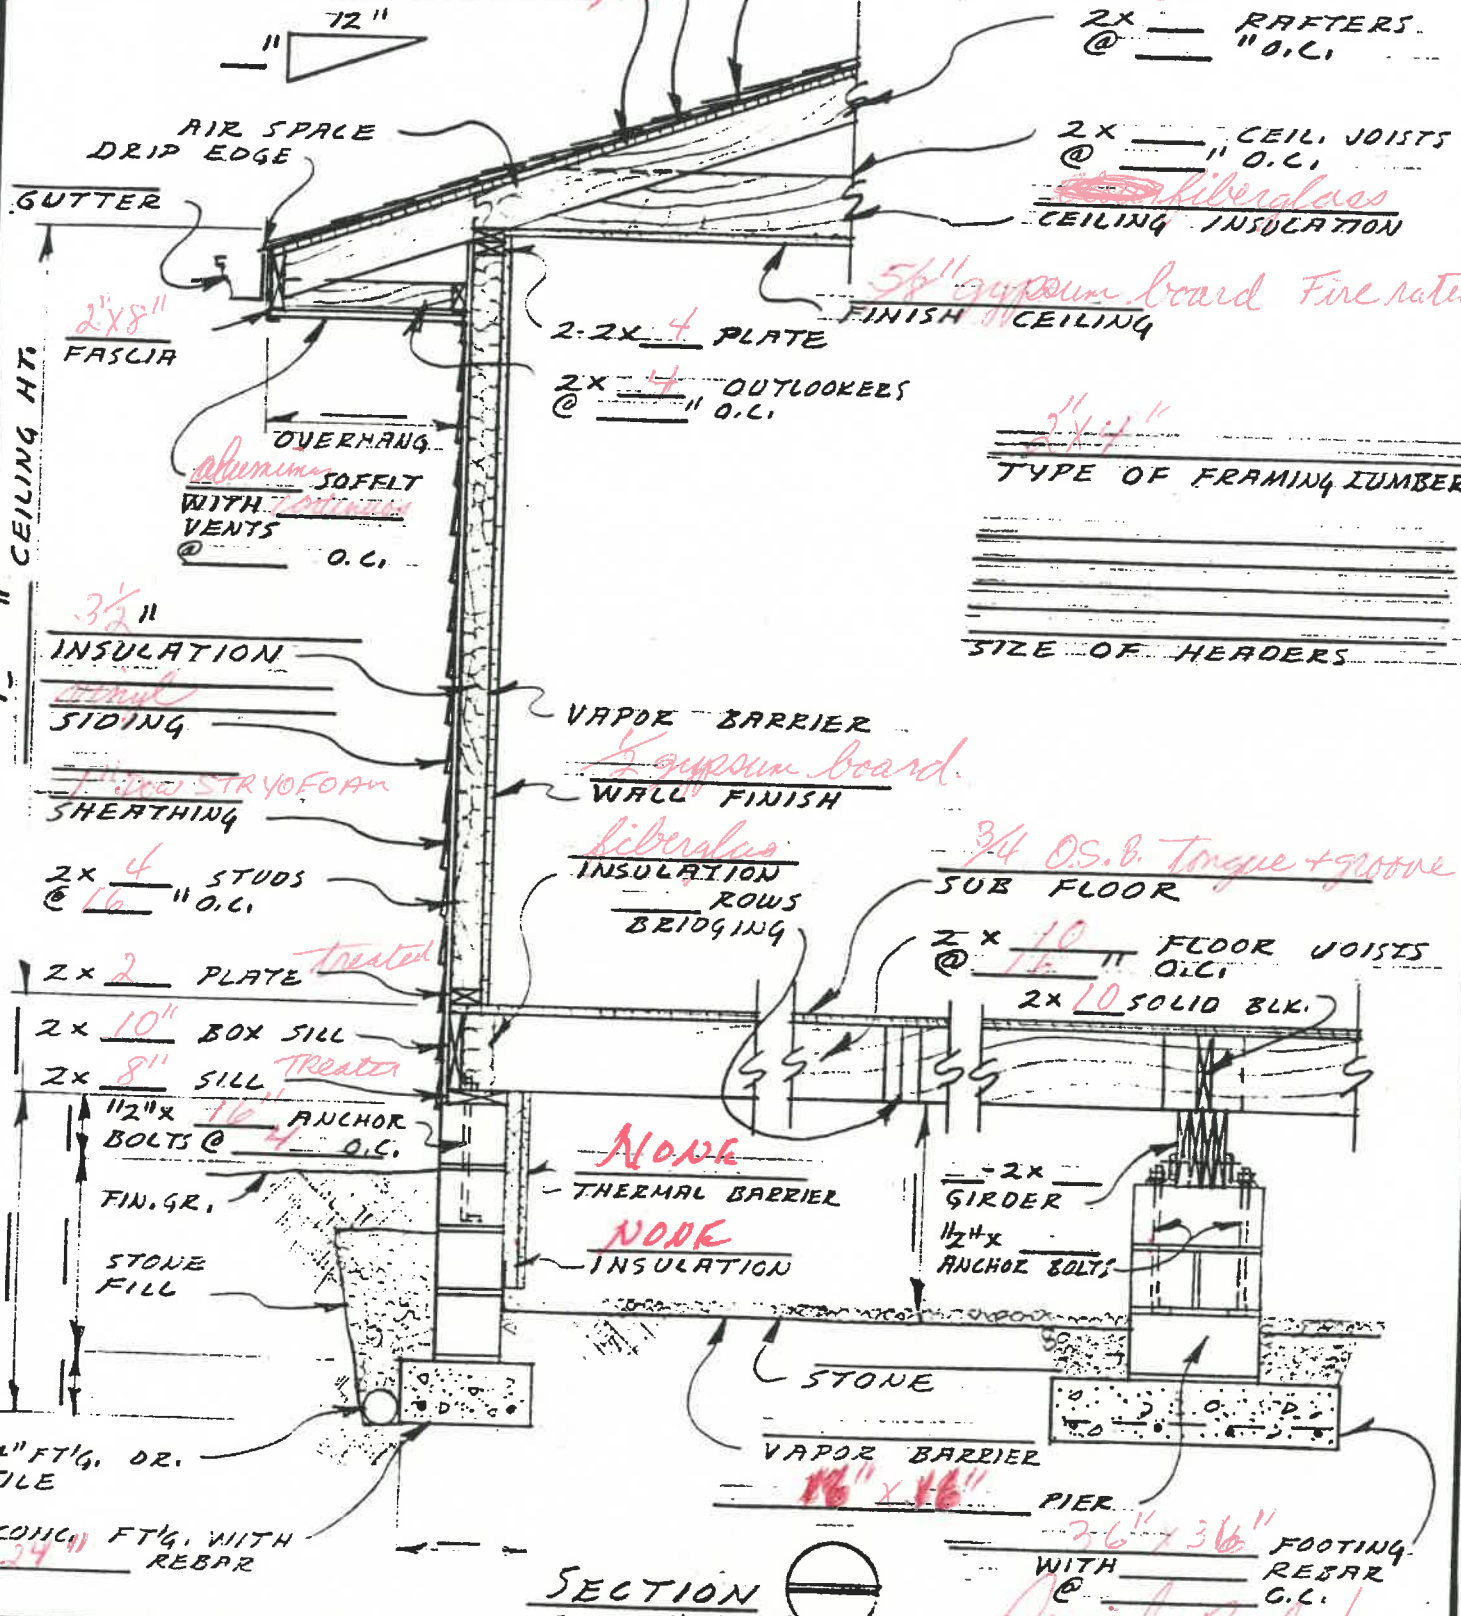 12"
"
2x ___ RAFTERS
@ ___ "O.C.
AIR SPACE
DRIP EDGE
GUTTER
2x ___ " CEIL. JOISTS
@ ___ " O.C.
fiberglass
CEILING INSULATION
5/8" gypsum board Fire rate
FINISH CEILING
2"x8"
FASCIA
2-2x 4 PLATE
2x 4 OUTLOOKERS
@ ___ " O.C.
CEILING HT.
OVERHANG
aluminum SOFFIT
WITH continuous
VENTS
@ ___ O.C.
2"x4"
TYPE OF FRAMING LUMBER
SIZE OF HEADERS
3 1/2 "
INSULATION
vinyl
SIDING
VAPOR BARRIER
1" Dow STRYOFOAM
SHEATHING
1/2 gypsum board
WALL FINISH
2x 4 STUDS
@ 16 "O.C.
fiberglass
INSULATION
___ ROWS
BRIDGING
3/4 O.S.B. Tongue + groove
SUB FLOOR
2 x 10 FLOOR JOISTS
@ 16 " O.C.
2x 10 SOLID BLK.
2x 2 PLATE treated
2x 10" BOX SILL
2x 8" SILL Treated
1/2"x 16" ANCHOR
BOLTS @ 4 O.C.
FIN. GR.
NONE
THERMAL BARRIER
NONE
INSULATION
STONE
FILL
___-2x ___
GIRDER
1/2"x ___
ANCHOR BOLTS
STONE
VAPOR BARRIER
16" x 16" PIER
" FT'G. DR.
TILE
CONC. FT'G. WITH
24" REBAR
36" x 36" FOOTING
WITH ___ REBAR
@ ___ O.C.
SECTION